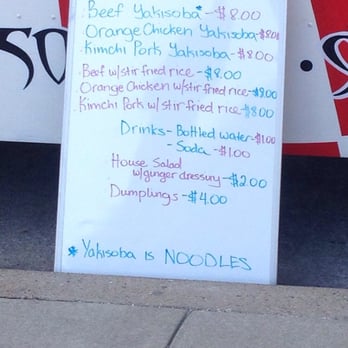 Beef Yakisoba* - $8.00
Orange Chicken Yakisoba - $8.00
Kimchi Pork Yakisoba - $8.00
Beef w/stir fried rice - $8.00
Orange Chicken w/stir fried rice - $8.00
Kimchi Pork w/stir fried rice - $8.00
Drinks - Bottled water - $1.00
- Soda - $1.00
House Salad
w/ginger dressing - $2.00
Dumplings - $4.00
* Yakisoba is NOODLES